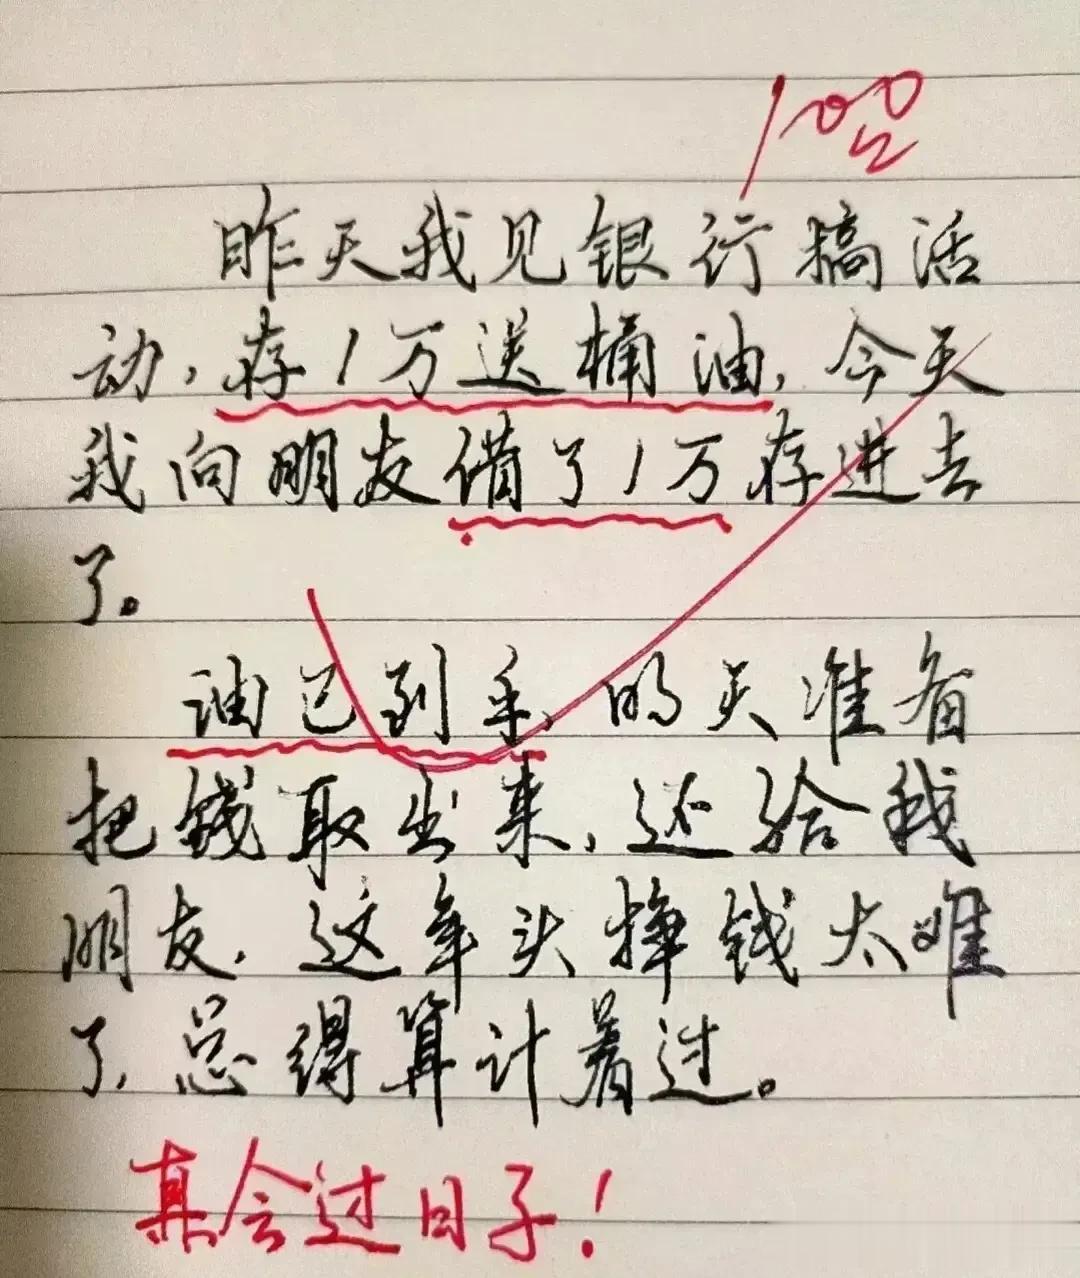 100
昨天我见银行搞活
动,存1万送桶油,今天
我向朋友借了1万存进去
了。
油已到手,明天准备
把钱取出来,还给我
朋友,这年头挣钱太难
了,总得算计着过。
真会过日子!